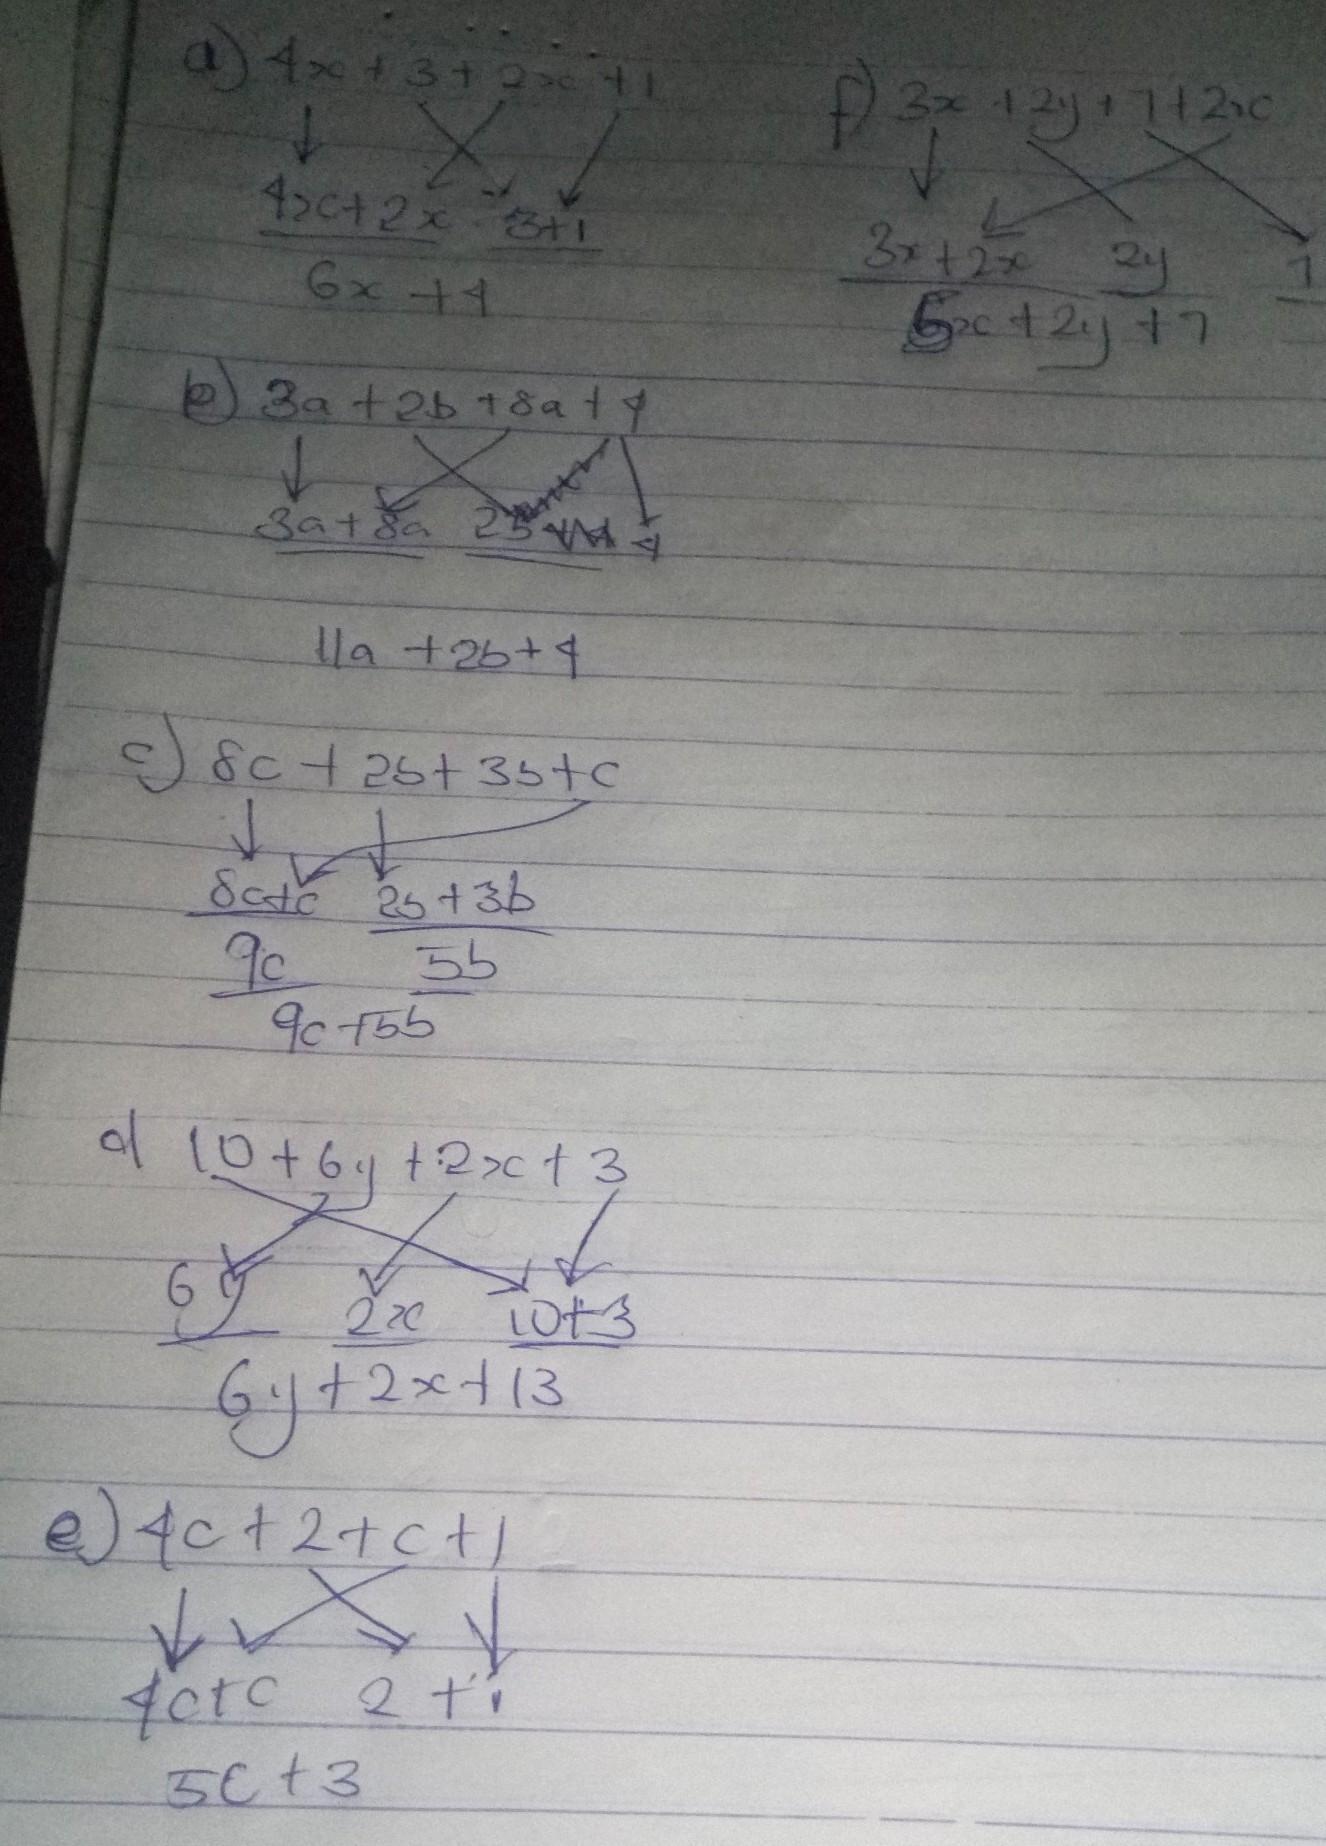 a) 4x + 3 + 2x + 1
4x + 2x 3+1
6x + 4
b) 3a + 2b + 8a + 4
3a + 8a 2b 4
11a + 2b + 4
c) 8c + 2b + 3b + c
8c+c 2b + 3b
9c 5b
9c + 5b
d 10 + 6y + 2x + 3
6y 2x 10+3
6y + 2x + 13
e) 4c + 2 + c + 1
4c+c 2 + 1
5c + 3
f) 3x + 2y + 7 + 2x
3x + 2x 2y 7
5x + 2y + 7